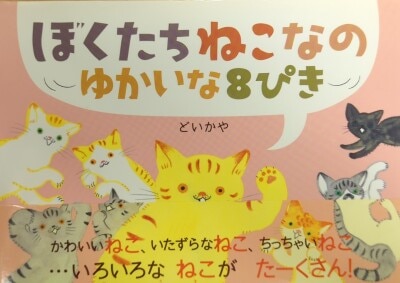 ぼくたち ねこなの
ゆかいな8ぴき
どいかや
かわいいねこ、いたずらなねこ、ちっちゃいねこ
…いろいろな ねこが たーくさん!